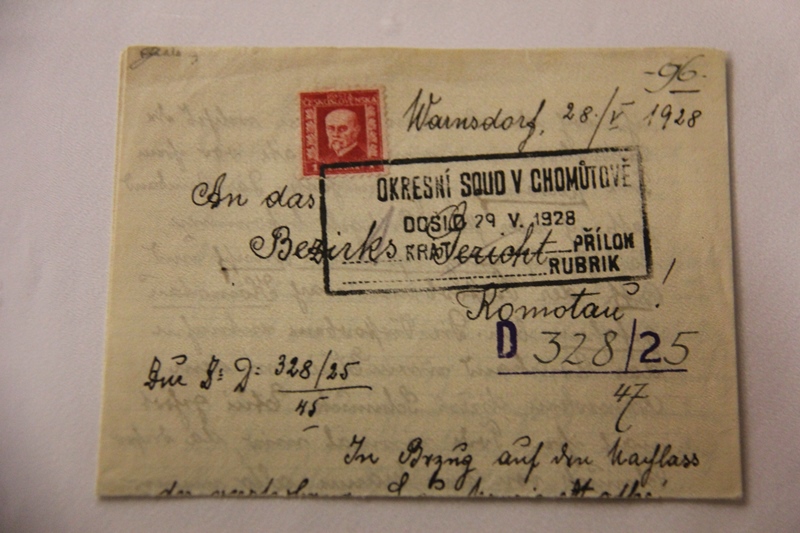 -96-
ČESKOSLOVENSKA
Warnsdorf, 28./V 1928
OKRESNÍ SOUD V CHOMÚTOVĚ
An das
DOŠLO 29 V. 1928
Bezirks Gericht
KRÁT PŘÍLOH
RUBRIK
Komotau !
D 328/25
47
Zur Z: D: 328/25
45
In Bezug auf den Nachlass